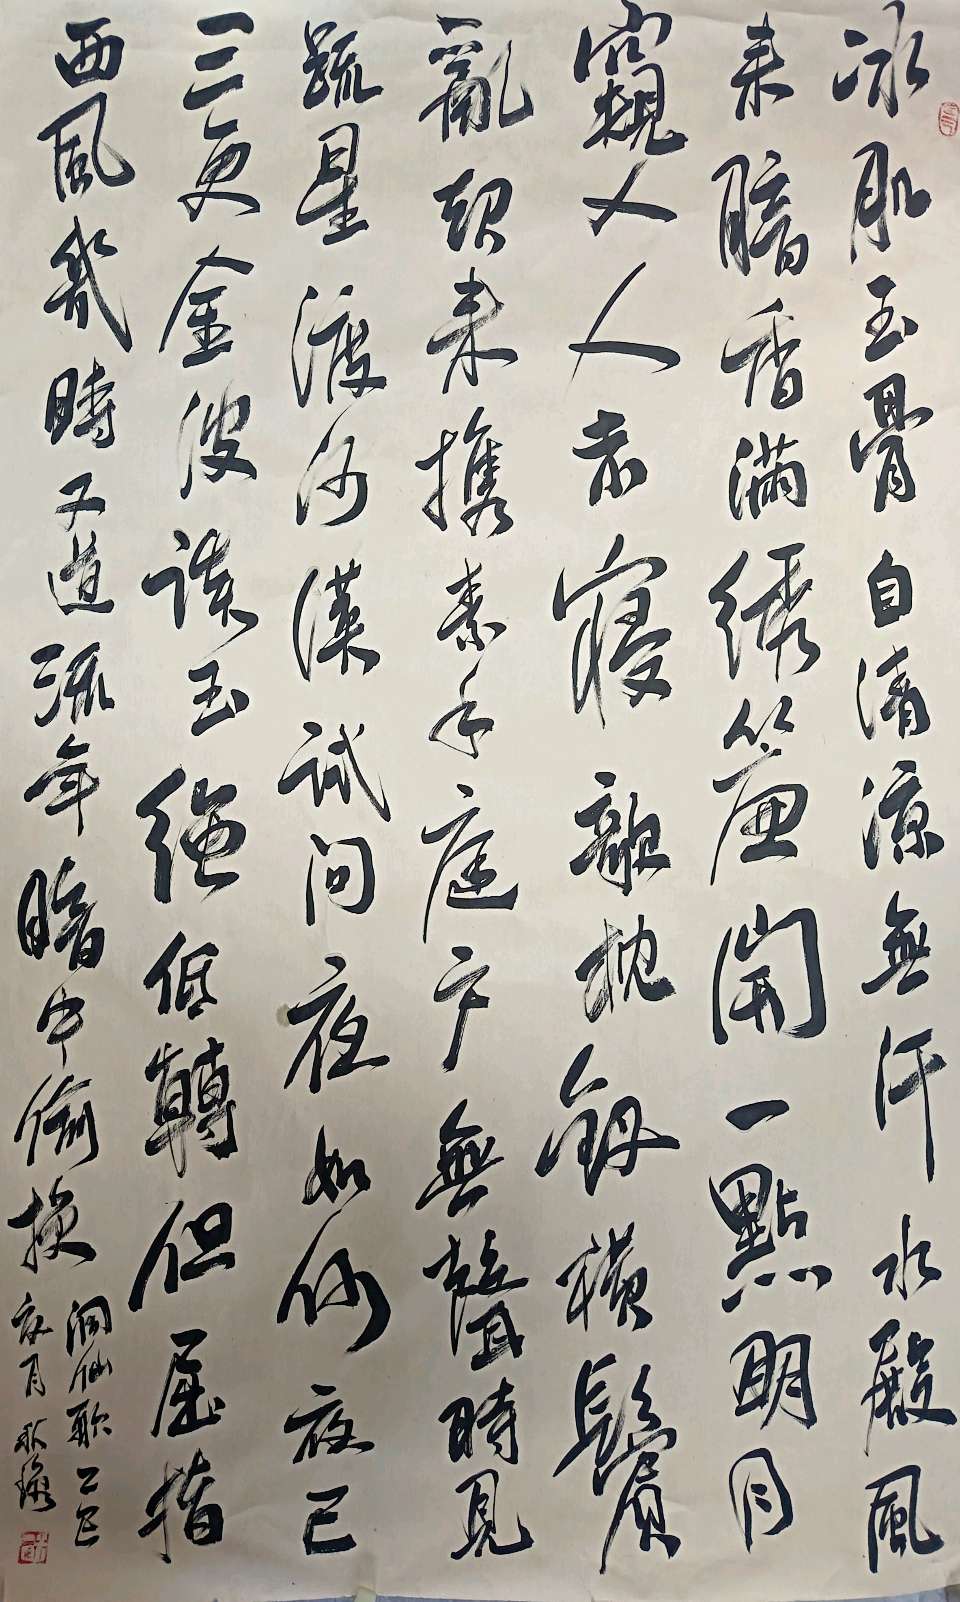 冰肌玉骨自清涼無汗水殿風
来暗香滿綉簾開一點明月
窺人人未寢欹枕釵橫鬢
亂起来携素手庭户無聲時見
疏星渡河漢試問夜如何夜已
三更金波淡玉繩低轉但屈指
西風幾時又道流年暗中偷換
洞仙歌乙巳
月